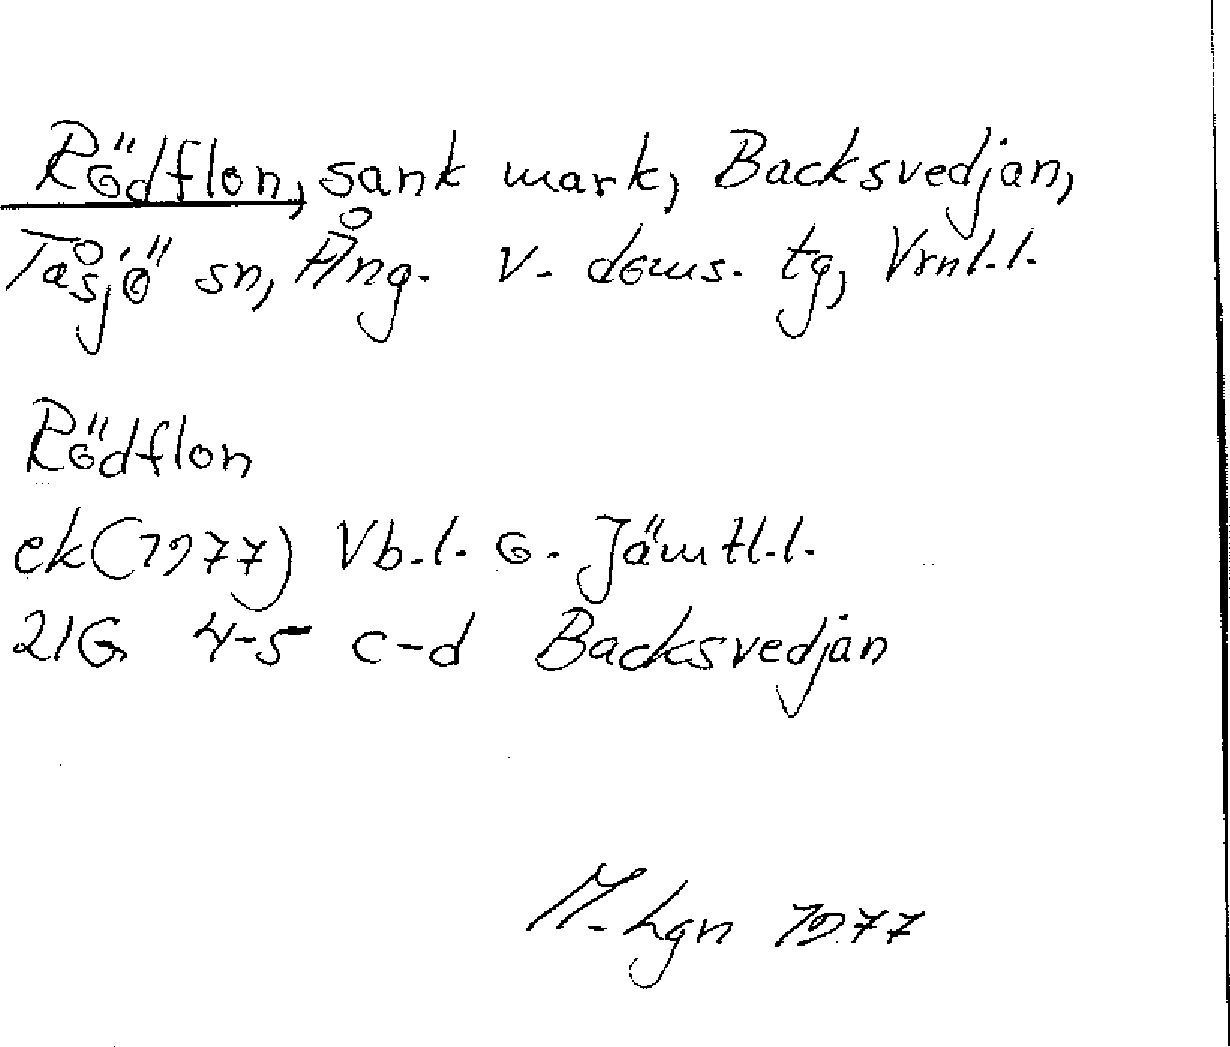 Rödflon, sank mark, Backsvedjan,
Tåsjö sn, Ång. v. doms. tg, Vrnl.l.
Rödflon
ek (1977) Vb.l. o. Jämtl.l.
21G 4-5 c-d Backsvedjan
M. Lgn 1977